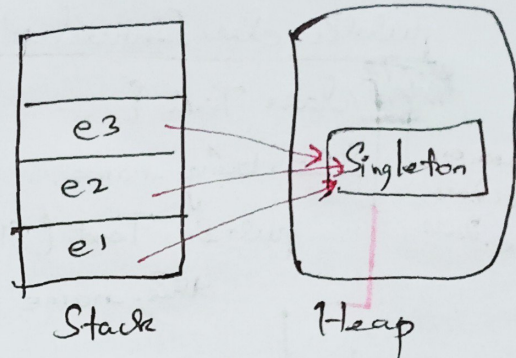 e3
e2
e1
Singleton
Stack
Heap